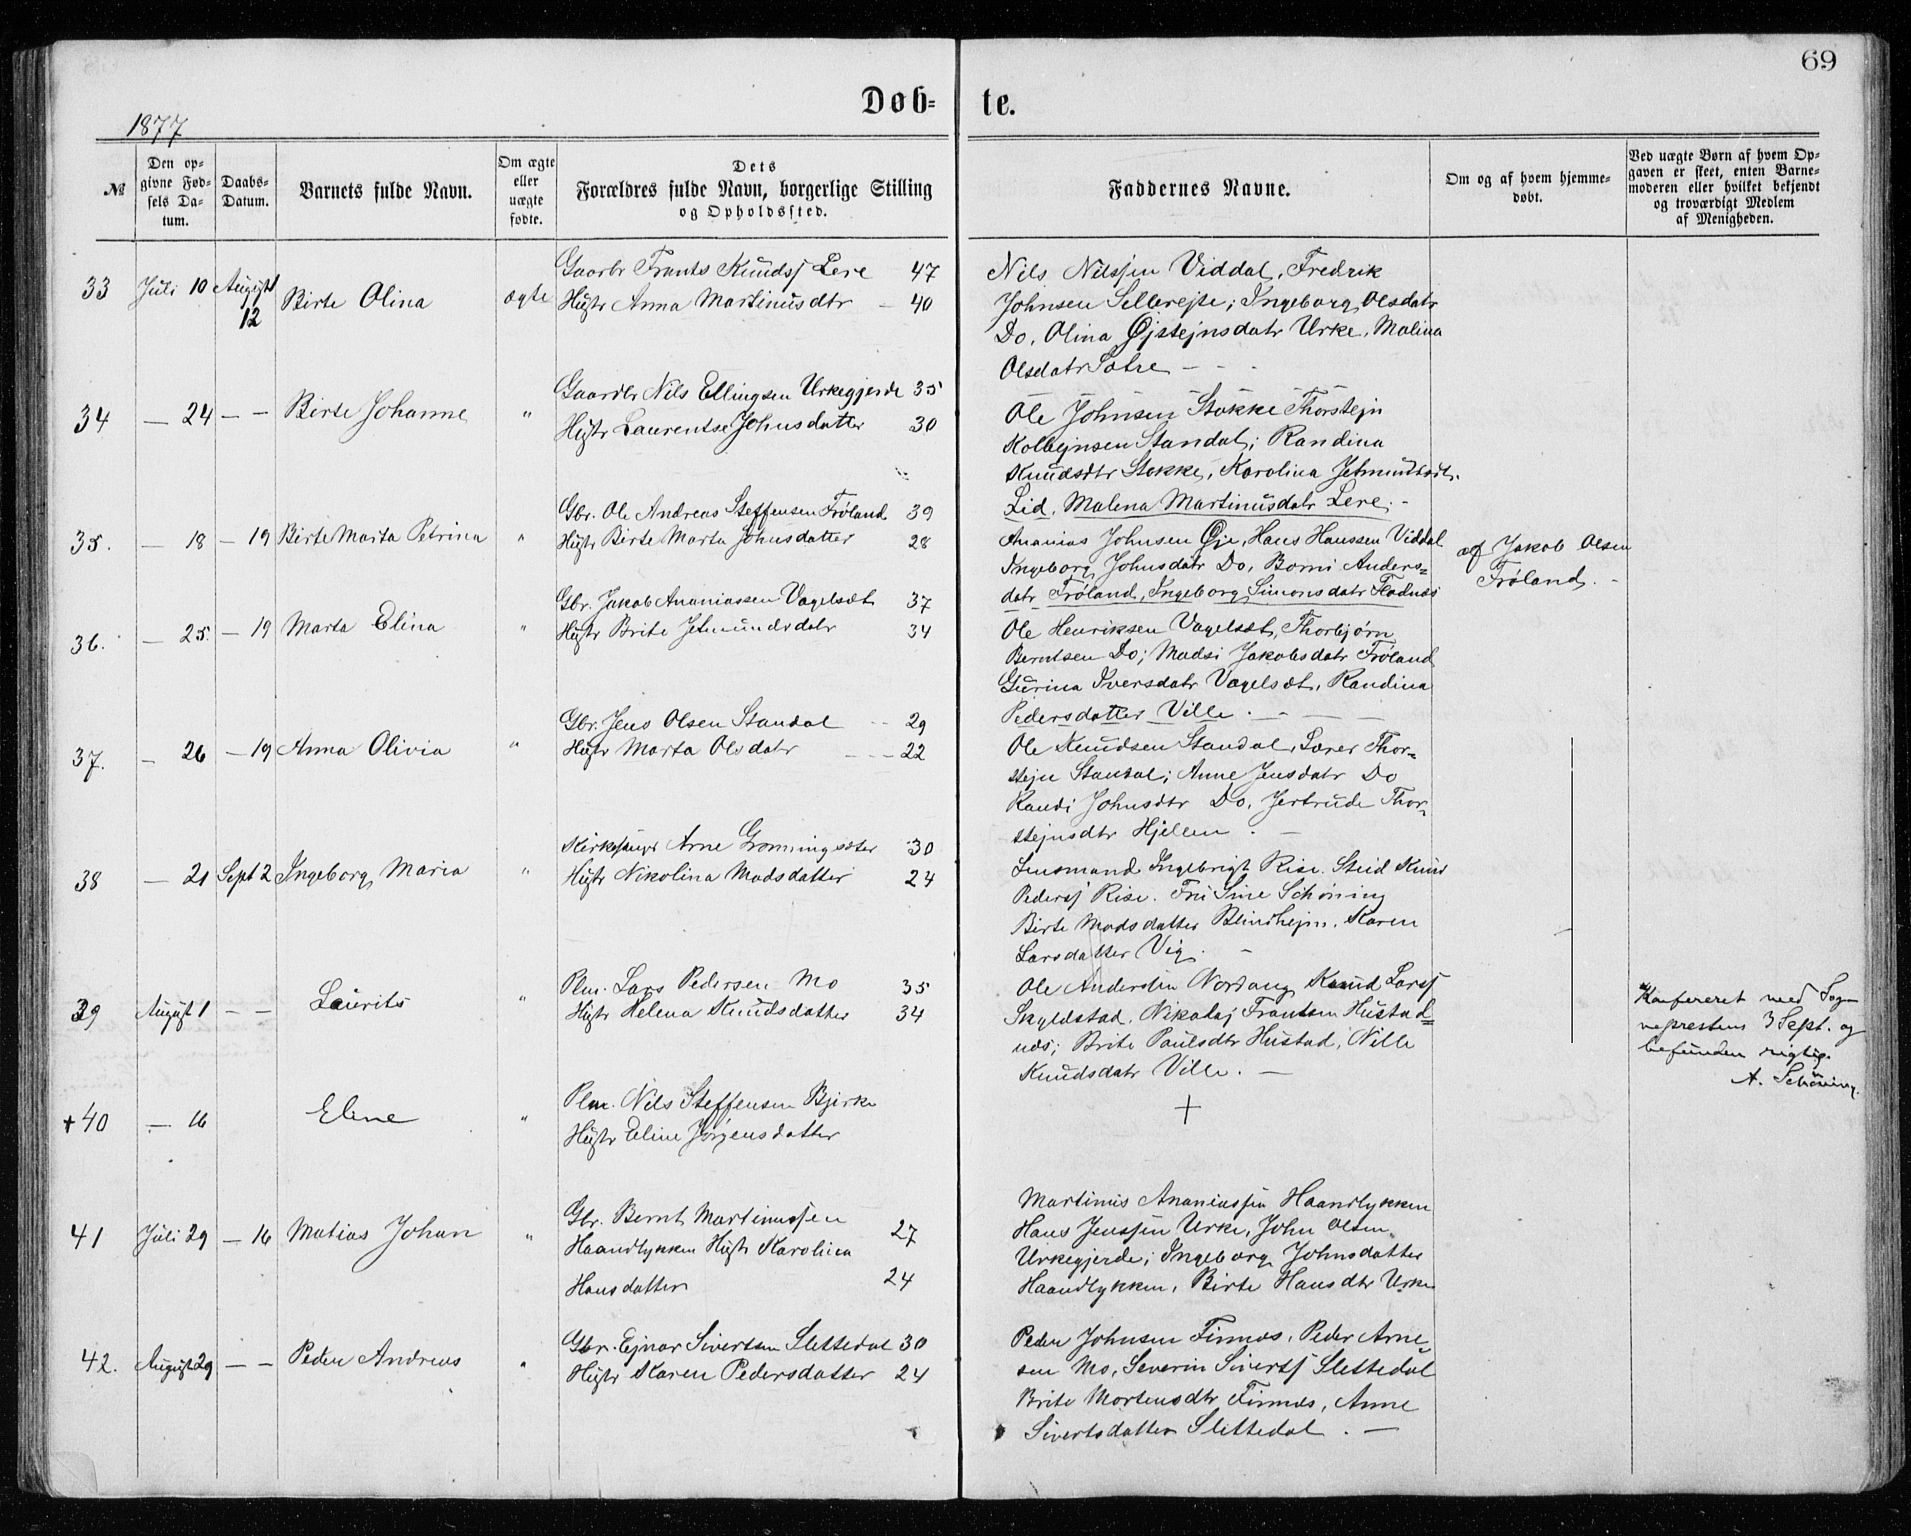 69
Døb= te.
1877
№
Den op=
givne Fød=
sels Da=
tum.
Daabs=
Datum.
Barnets fulde Navn.
Om ægte
eller
uægte
fødte.
Dets
Forældres fulde Navn, borgerlige Stilling
og Opholdssted.
Faddernes Navne.
Om og af hvem hjemme=
døbt.
Ved uægte Børn af hvem Op=
gaven er skeet, enten Barne=
moderen eller hvilket bekjendt
og troværdigt Medlem
af Menigheden.
33 Juli 10 August 12 Birte Olina ægte
Gaarbr Frants Knudsf Lere 47
Hustr Anna Martinusdtr — 40
Nils Nilssen Viddal, Fredrik
Johnsen Sellerejte; Ingeborg Olsdatr
Do, Olina Øjstejnsdatr Urke, Malina
Olsdatr Sætre — - -
34 — 24 — — Birte Johanne "
Gaardbr Nils Ellingsen Urkegjerde 35
Hustr Laurentse Johnsdatter 30
Ole Johnsen Stokke Thorstejn
Kolbejnsen Standal; Randina
Knudsdtr Stokke, Karolina Jetmundsdt.
Lid, Malena Martinusdatr Lere. -
35. — 18 — 19 Birte Marta Petrina "
Gbr. Ole Andreas Steffensen Frøland 39
Hustr Birte Marta Johnsdatter 28
Ananias Johnsen Øje, Hans Hanssen Viddal
Ingeborg Johnsdatr Do, Borni Anders=
datr Frøland, Ingeborg Simonsdatr Flodnæs
af Jakob Olsen
Frøland. -
36. — 25 — 19 Marta Elina "
Gbr. Jakob Ananiassen Vagelsæt 37
Hustr Brite Jetmundsdatr 34
Ole Henriksen Vagelsæt, Thorbjørn
Berntsen Do; Madsi Jakobsdatr Frøland
Gurina Iversdatr Vagelsæt, Randina
Pedersdatter Ville. — — —
37. — 26 — 19 Anna Olivia "
Gbr. Jens Olsen Standal — 29
Hustr Marta Olsdatr — — — 22
Ole Knudsen Standal, Lærer Thor=
stejn Standal; Anne Jensdatr Do
Randi Johnsdtr Do, Jertrude Thor=
stejnsdtr Hjellen. —
38 — 21 Sept 2 Ingeborg Maria "
Kirkesanger Arne Grønningsæter 30
Hustr Nikolina Madsdatter 24
Lensmand Ingebrigt Rise. Stud Knud
Pedersf Rise. Fru Sine Schøning
Birte Madsdatter Blindhejm, Karen
Larsdatter Vig. —
39 August 1 — — Laurits "
Plm. Lars Pedersen Mo 35
Hustr Helena Knudsdatter 34
Ole Andersen Nordang Knud Larsf
Skyldstad, Nikolaj Frantsen Hustad
næs; Brite Paulsdtr Hustad, Nille
Knudsdatr Ville. —
Konfereret med Sog-
neprestens 3 Sept. og
befunden rigtig.
A. Schøning.
+ 40 — 16 Eline "
Plm. Nils Steffensen Bjerke
Hustr Eline Jørgensdatter
+
41 Juli 29 — 16 Matias Johan "
Gbr. Bernt Martinussen 27
Haandlykken Hustr Karolina
Hansdatter 24
Martinus Ananiassen Haandlykken
Hans Jenssen Urke, John Olsen
Urkegjerde; Ingeborg Johnsdatter
Haandlykken, Birte Hansdtr Urke
42. August 29 — — Peder Andreas "
Gbr. Ejnar Sivertsen Slettedal 30
Hustr Karen Pedersdatter 24
Peder Johnsen Finnæs, Peder Arne=
sen Mo, Severin Sivertsf Slettedal
Brite Mortensdtr Finnæs, Anne
Sivertsdatter Slettedal. —